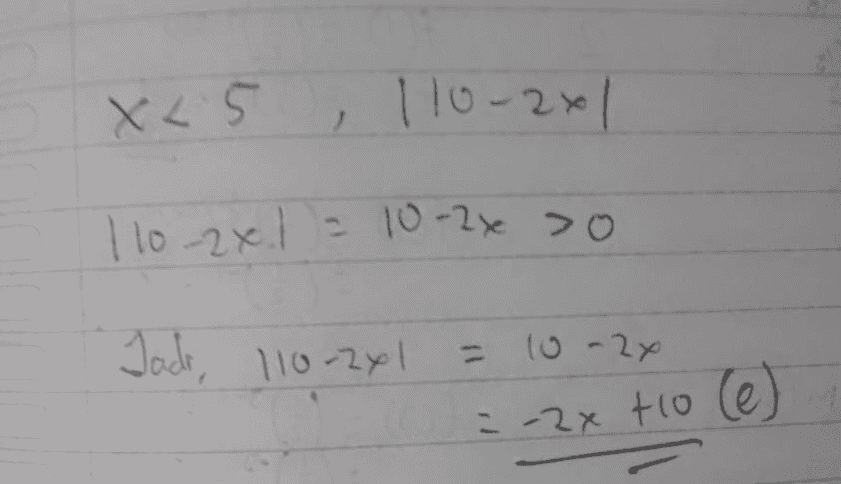 x < 5 , |10-2x|
|10-2x| = 10-2x >0
Jadi, |10-2x| = 10-2x
= -2x +10 (e)